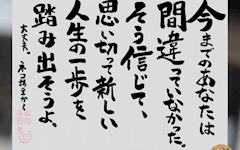 今までのあなたは
間違っていなかった。
そう信じて、
思い切って新しい
人生の一歩を
踏み出そうよ。
大丈夫。